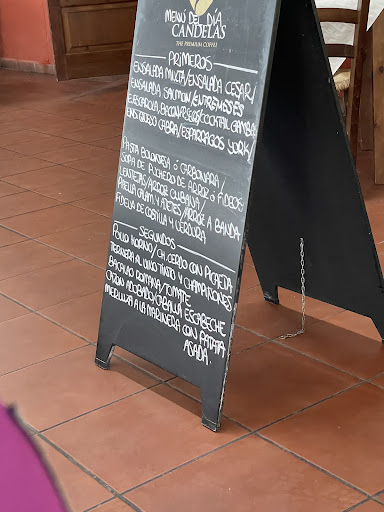 MENÚ DEL DIA
CANDELAS
THE PREMIUM COFFEE
PRIMEROS
ENSALADA MIXTA/ENSALADA CESAR/
ENSALADA SALMON/ENTREMESES
ESCAROLA, BACON Y QUESO/COCKTAIL GAMBAS
ENSAL QUESO CABRA/ESPARRAGOS YORK/
PASTA BOLOÑESA Ó CARBONARA/
SOPA DE PUCHERO DE ARROZ O FIDEOS
LENTEJAS/ARROZ CUBANA/
PAELLA CALAM. Y /ARROZ A BANDA
FIDEUA DE COSTILLA Y VERDURA
SEGUNDOS
POLLO HORNO/CH. CERDO CON PICAETA
TERNERA AL VINO TINTO Y CHAMPIÑONES
BACALAO ROMANA/TOMATE
CAZON ADOBADO/CABALLA ESCABECHE
MERLUZA A LA MARINERA CON PATATA
ASADA.